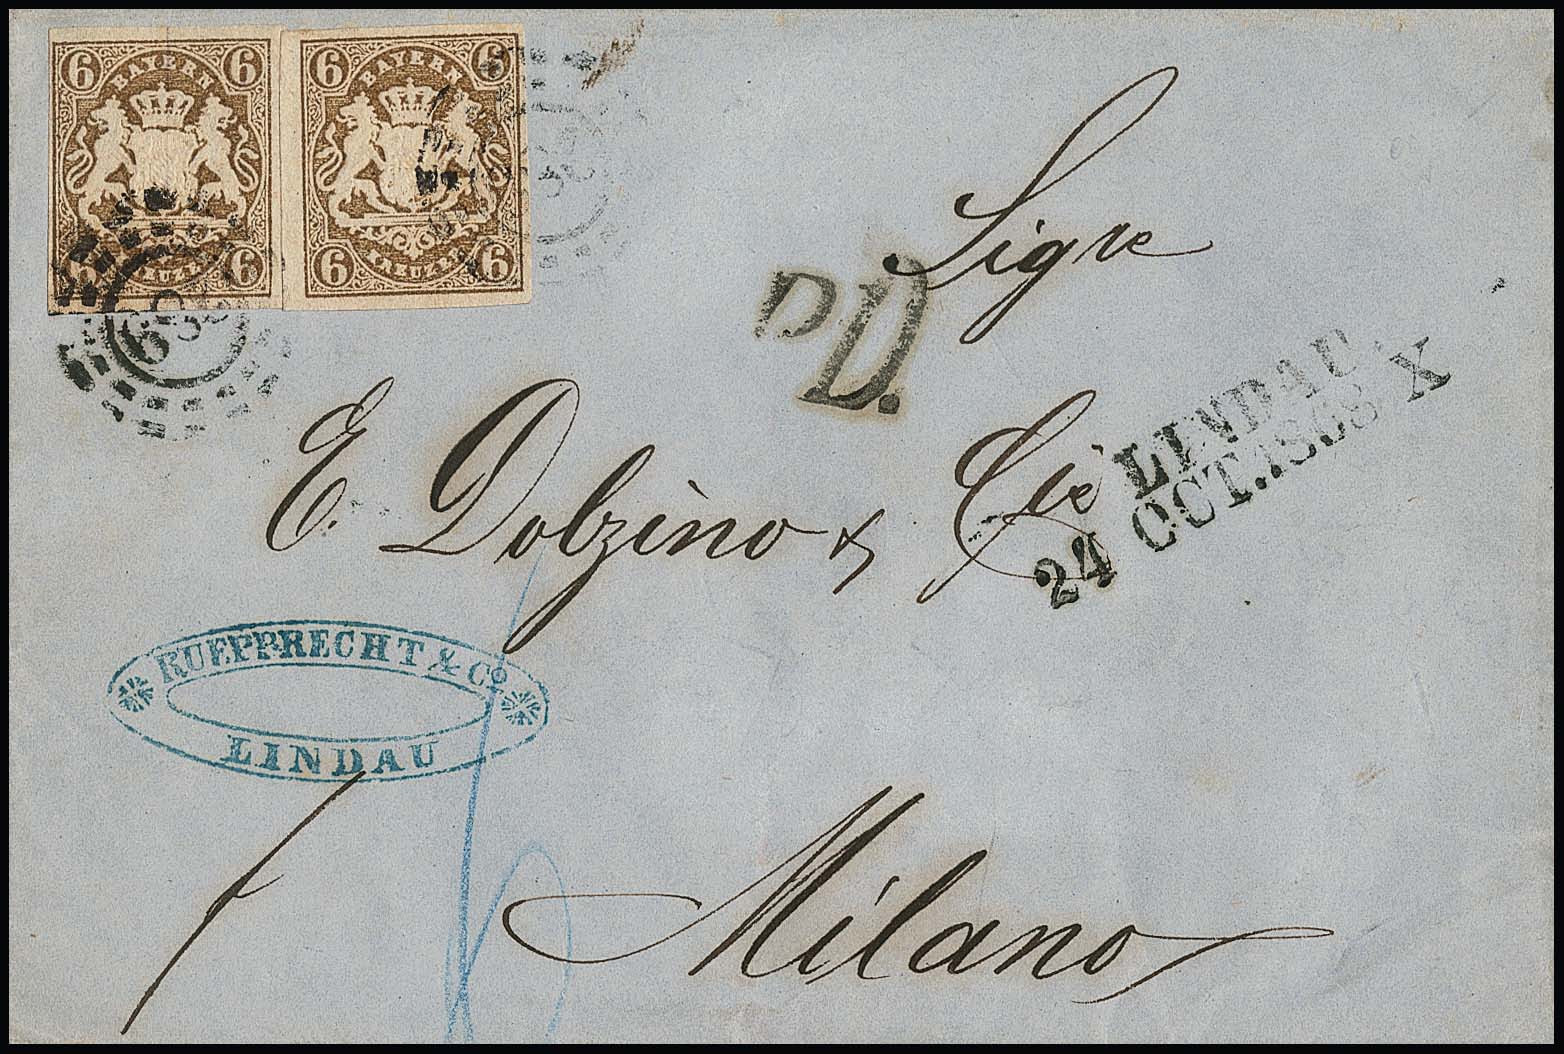 6 BAYERN 6
6 KREUZER 6
6 BAYERN 6
6 KREUZER 6
Sigre
P.D.
LINDAU.
24 OCT. 1868 X
E. Dolzino & Cie
RUEPPRECHT & Co
LINDAU
Milano